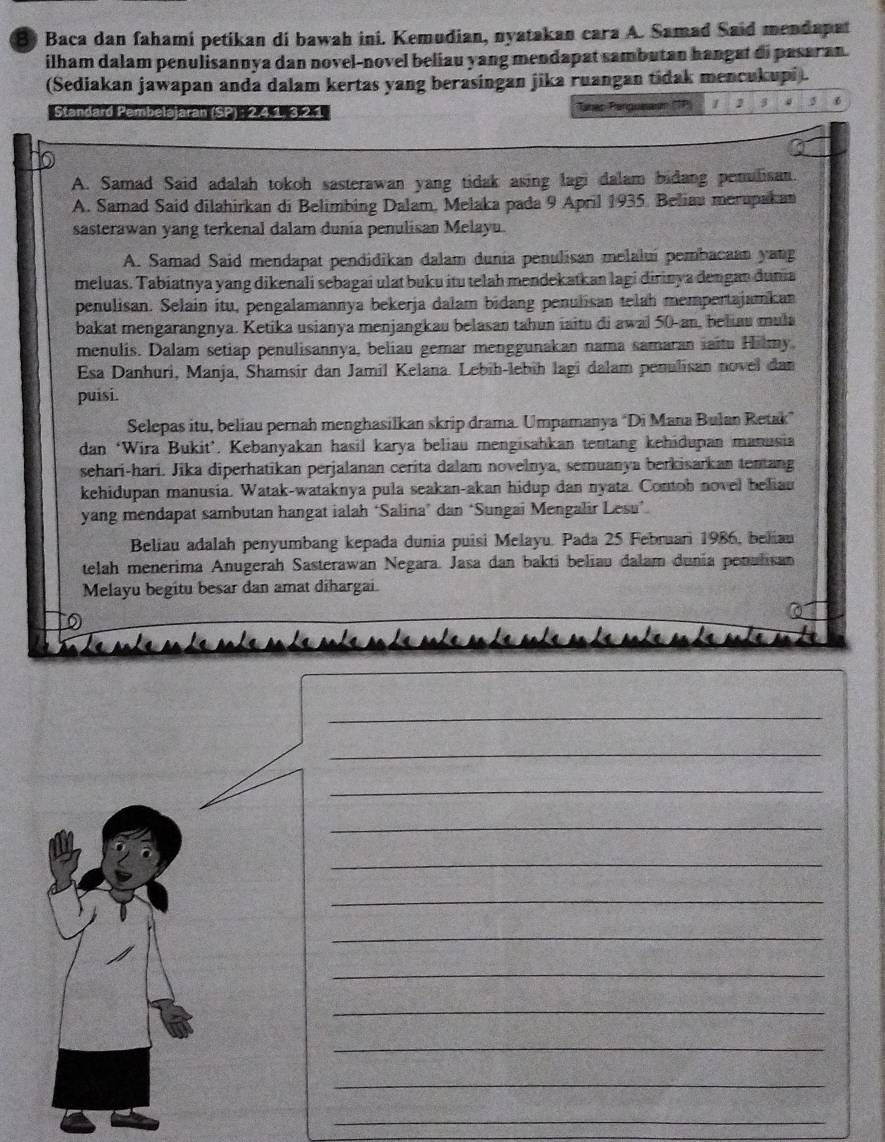 B Baca dan fahami petikan di bawah ini. Kemudian, nyatakan cara A. Samad Said mendapat
ilham dalam penulisannya dan novel-novel beliau yang mendapat sambutan hangat di pasaran.
(Sediakan jawapan anda dalam kertas yang berasingan jika ruangan tidak mencukupi).
Standard Pembelajaran (SP) : 2.4.1, 3.2.1
Tahap Penguasaan (TP) 1 2 3 4 5 6
A. Samad Said adalah tokoh sasterawan yang tidak asing lagi dalam bidang penulisan.
A. Samad Said dilahirkan di Belimbing Dalam, Melaka pada 9 April 1935. Beliau merupakan
sasterawan yang terkenal dalam dunia penulisan Melayu.
A. Samad Said mendapat pendidikan dalam dunia penulisan melalui pembacaan yang
meluas. Tabiatnya yang dikenali sebagai ulat buku itu telah mendekatkan lagi dirinya dengan dunia
penulisan. Selain itu, pengalamannya bekerja dalam bidang penulisan telah mempertajamkan
bakat mengarangnya. Ketika usianya menjangkau belasan tahun iaitu di awal 50-an, beliau mula
menulis. Dalam setiap penulisannya, beliau gemar menggunakan nama samaran iaitu Hilmy,
Esa Danhuri, Manja, Shamsir dan Jamil Kelana. Lebih-lebih lagi dalam penulisan novel dan
puisi.
Selepas itu, beliau pernah menghasilkan skrip drama. Umpamanya ‘Di Mana Bulan Retak’
dan ‘Wira Bukit’. Kebanyakan hasil karya beliau mengisahkan tentang kehidupan manusia
sehari-hari. Jika diperhatikan perjalanan cerita dalam novelnya, semuanya berkisarkan tentang
kehidupan manusia. Watak-wataknya pula seakan-akan hidup dan nyata. Contoh novel beliau
yang mendapat sambutan hangat ialah ‘Salina’ dan ‘Sungai Mengalir Lesu’.
Beliau adalah penyumbang kepada dunia puisi Melayu. Pada 25 Februari 1986, beliau
telah menerima Anugerah Sasterawan Negara. Jasa dan bakti beliau dalam dunia penulisan
Melayu begitu besar dan amat dihargai.